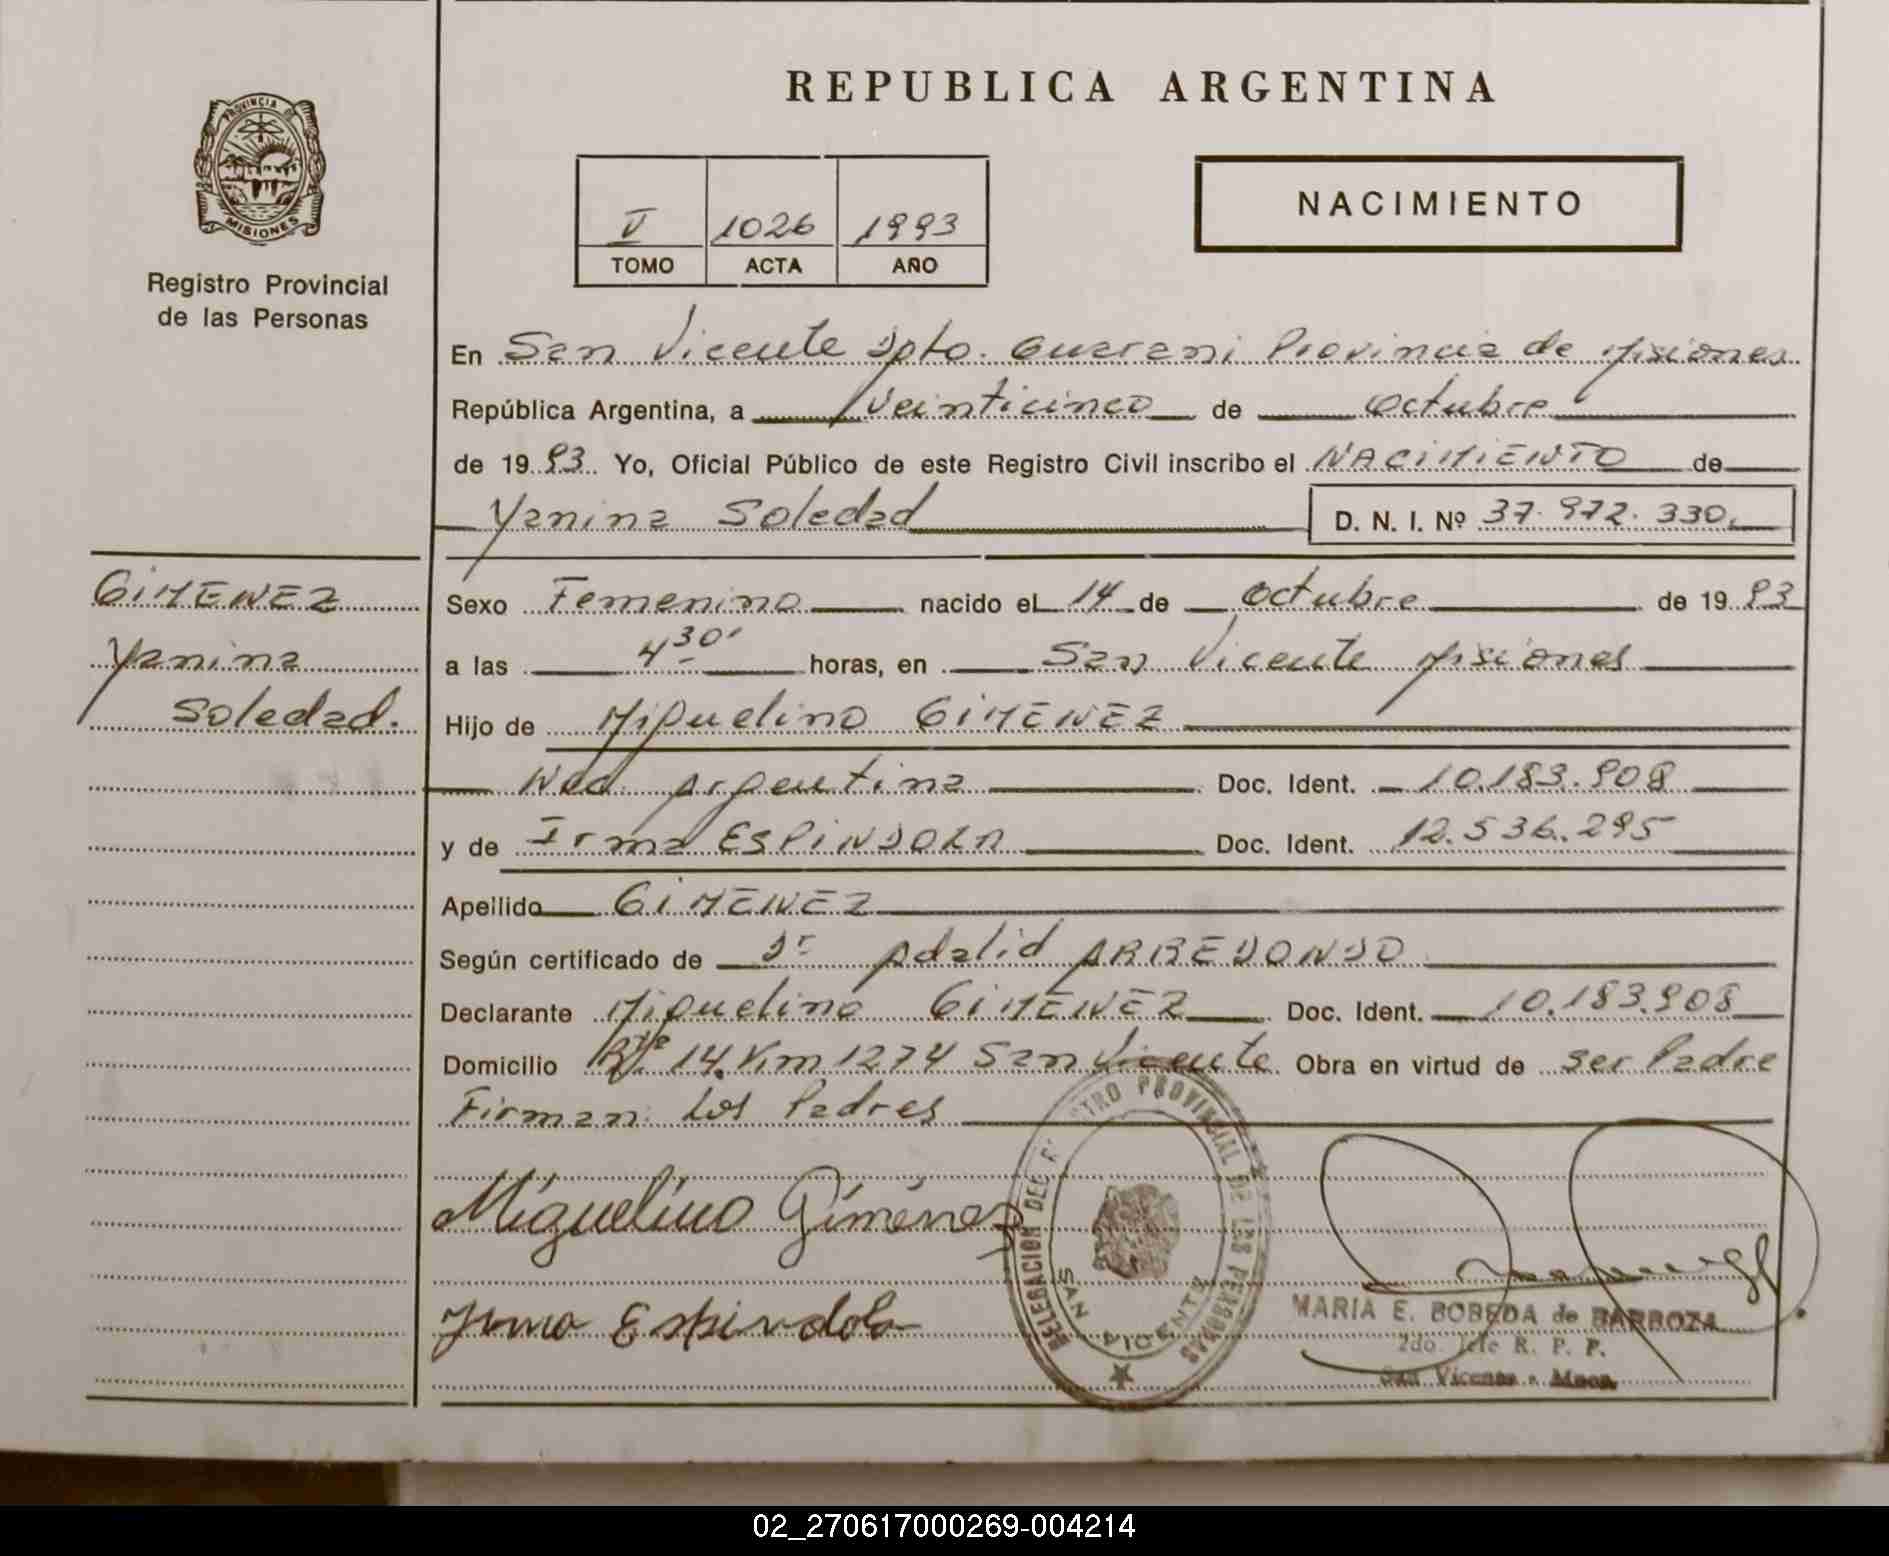 REPUBLICA ARGENTINA
PROVINCIA DE
MISIONES
Registro Provincial
de las Personas
V 1026 1993
TOMO ACTA AÑO
NACIMIENTO
En San Vicente Dpto. Guarani Provincia de Misiones
República Argentina, a Veinticinco de Octubre
de 1993 Yo, Oficial Público de este Registro Civil inscribo el NACIMIENTO de
Yanina Soledad D. N. I. Nº 37.972.330.
GIMENEZ
Yanina
Soledad.
Sexo Femenino nacido el 14 de Octubre de 1993
a las 4 30' horas, en San Vicente Misiones
Hijo de Miguelino GIMENEZ
Nac. Argentina Doc. Ident. 10.183.908
y de Irma ESPINDOLA Doc. Ident. 12.536.295
Apellido GIMENEZ
Según certificado de Dr Adalid ARREDONDO
Declarante Miguelino GIMENEZ Doc. Ident. 10.183.908
Domicilio Rta 14. Km 1274 San Vicente Obra en virtud de ser Padre
Firman: Los Padres
Miguelino Giménez
Irma Espindola
DELEGACION DEL REGISTRO PROVINCIAL DE LAS PERSONAS
SAN VICENTE
MARIA E. BOBEDA de BARROZA
2do. Jefe R. P. P.
San Vicente - Mnes.
02_270617000269-004214